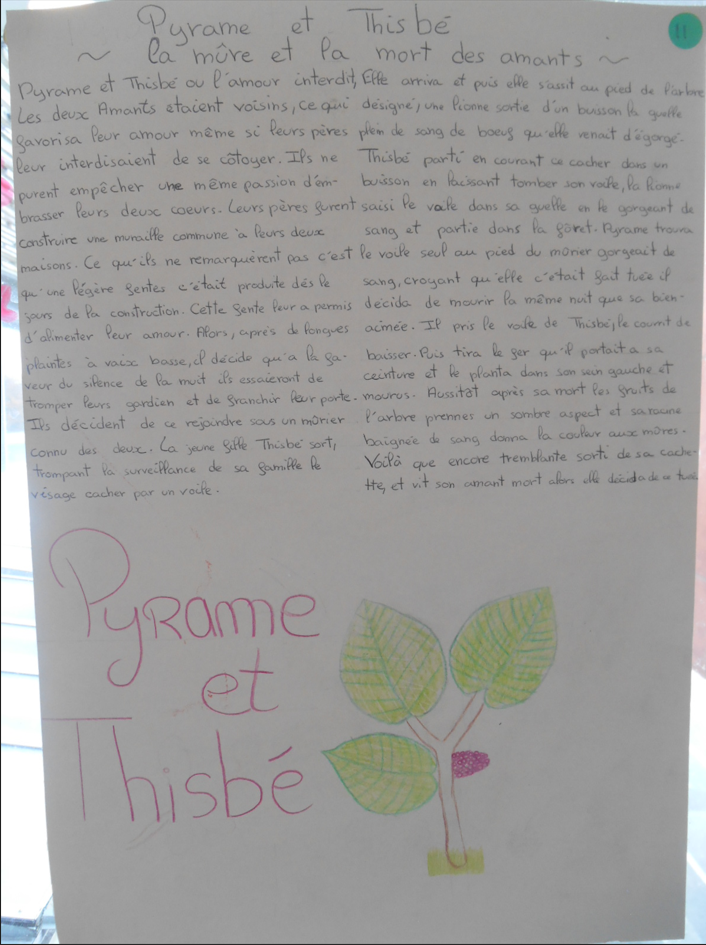 Pyrame et Thisbé
11
~ La mûre et la mort des amants ~
Pyrame et Thisbé ou l'amour interdit,
Les deux Amants étaient voisins, ce qui
favorisa leur amour même si leurs pères
leur interdisaient de se côtoyer. Ils ne
purent empêcher une même passion d'em-
brasser leurs deux coeurs. Leurs pères furent
construire une muraille commune à leurs deux
maisons. Ce qu'ils ne remarquèrent pas c'est
qu'une légère fentes c'était produite dès le
jours de la construction. Cette fente leur a permis
d'alimenter leur amour. Alors, après de longues
plaintes à voix basse, il décide qu'a la fa-
veur du silence de la nuit ils essaieront de
tromper leurs gardien et de franchir leur porte.
Ils décident de ce rejoindre sous un mûrier
connu des deux. La jeune fille Thisbé sort,
trompant la surveillance de sa famille le
visage cacher par un voile.
Elle arriva et puis elle s'assit au pied de l'arbre
désigné, une lionne sortie d'un buisson la gueule
plein de sang de boeuf qu'elle venait d'égorgé.
Thisbé parti en courant ce cacher dans un
buisson en laissant tomber son voile, la lionne
saisi le voile dans sa gueule en le gorgeant de
sang et partie dans la forêt. Pyrame trouva
le voile seul au pied du mûrier gorgeait de
sang, croyant qu'elle c'etait fait tuée il
décida de mourir la même nuit que sa bien-
aimée. Il pris le voile de Thisbé, le couvrit de
baisser. Puis tira le fer qu'il portait a sa
ceinture et le planta dans son sein gauche et
mourus. Aussitôt après sa mort les fruits de
l'arbre prennes un sombre aspect et sa racine
baignée de sang donna la couleur aux mûres.
Voilà que encore tremblante sorti de sa cache-
tte, et vit son amant mort alors elle décida de ce tuée.
Pyrame
et
Thisbé